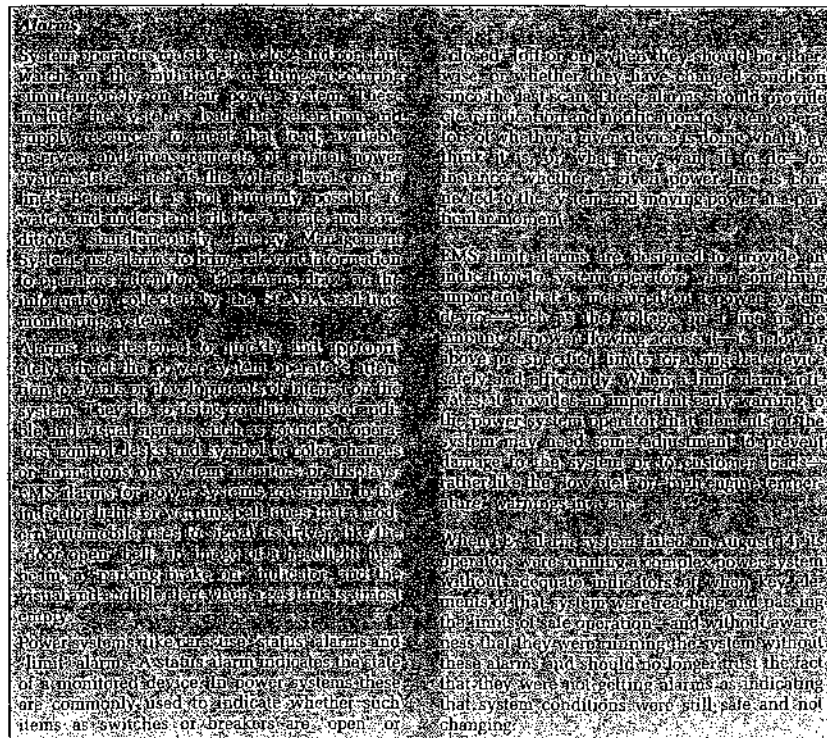 Alarms
System operators must keep a close and constant
watch on the multitude of things occurring
simultaneously on their power system. These
include the system's load, the generation and
supply resources to meet that load, available
reserves, and measurements of critical power
system states, such as the voltage levels on the
lines. Because it is not humanly possible to
watch and understand all these events and con-
ditions simultaneously, Energy Management
Systems use alarms to bring relevant information
to operators' attention. The alarms draw on the
information collected by the SCADA real-time
monitoring system.
Alarms are designed to quickly and appropri-
ately attract the power system operators' atten-
tion to events or developments of interest on the
system. They do so using combinations of audi-
ble and visual signals, such as sounds at opera-
tors' control desks and symbol or color changes
or animations on system monitors or displays.
EMS alarms for power systems are similar to the
indicator lights or warning bell tones that a mod-
ern automobile uses to signal its driver, like the
"door open" bell, an image of a headlight high
beam, a "parking brake on" indicator, and the
visual and audible alert when a gas tank is almost
empty.
Power systems, like cars, use "status" alarms and
"limit" alarms. A status alarm indicates the state
of a monitored device. In power systems these
are commonly used to indicate whether such
items as switches or breakers are "open" or
"closed" (off or on) when they should be other-
wise, or whether they have changed condition
since the last scan. These alarms should provide
clear indication and notification to system opera-
tors of whether a given device is doing what they
think it is, or what they want it to do—for
instance, whether a given power line is con-
nected to the system and moving power at a par-
ticular moment.
EMS limit alarms are designed to provide an
indication to system operators when something
important that is measured on a power system
device—such as the voltage on a line or the
amount of power flowing across it—is below or
above pre-specified limits for using that device
safely and efficiently. When a limit alarm acti-
vates, it provides an important early warning to
the power system operator that elements of the
system may need some adjustment to prevent
damage to the system or to customer loads—
rather like the "low fuel" or "high engine temper-
ature" warnings in a car.
When FE's alarm system failed on August 14, its
operators were running a complex power system
without adequate indicators of when key ele-
ments of that system were reaching and passing
the limits of safe operation—and without aware-
ness that they were running the system without
these alarms and should no longer trust the fact
that they were not getting alarms as indicating
that system conditions were still safe and not
changing.